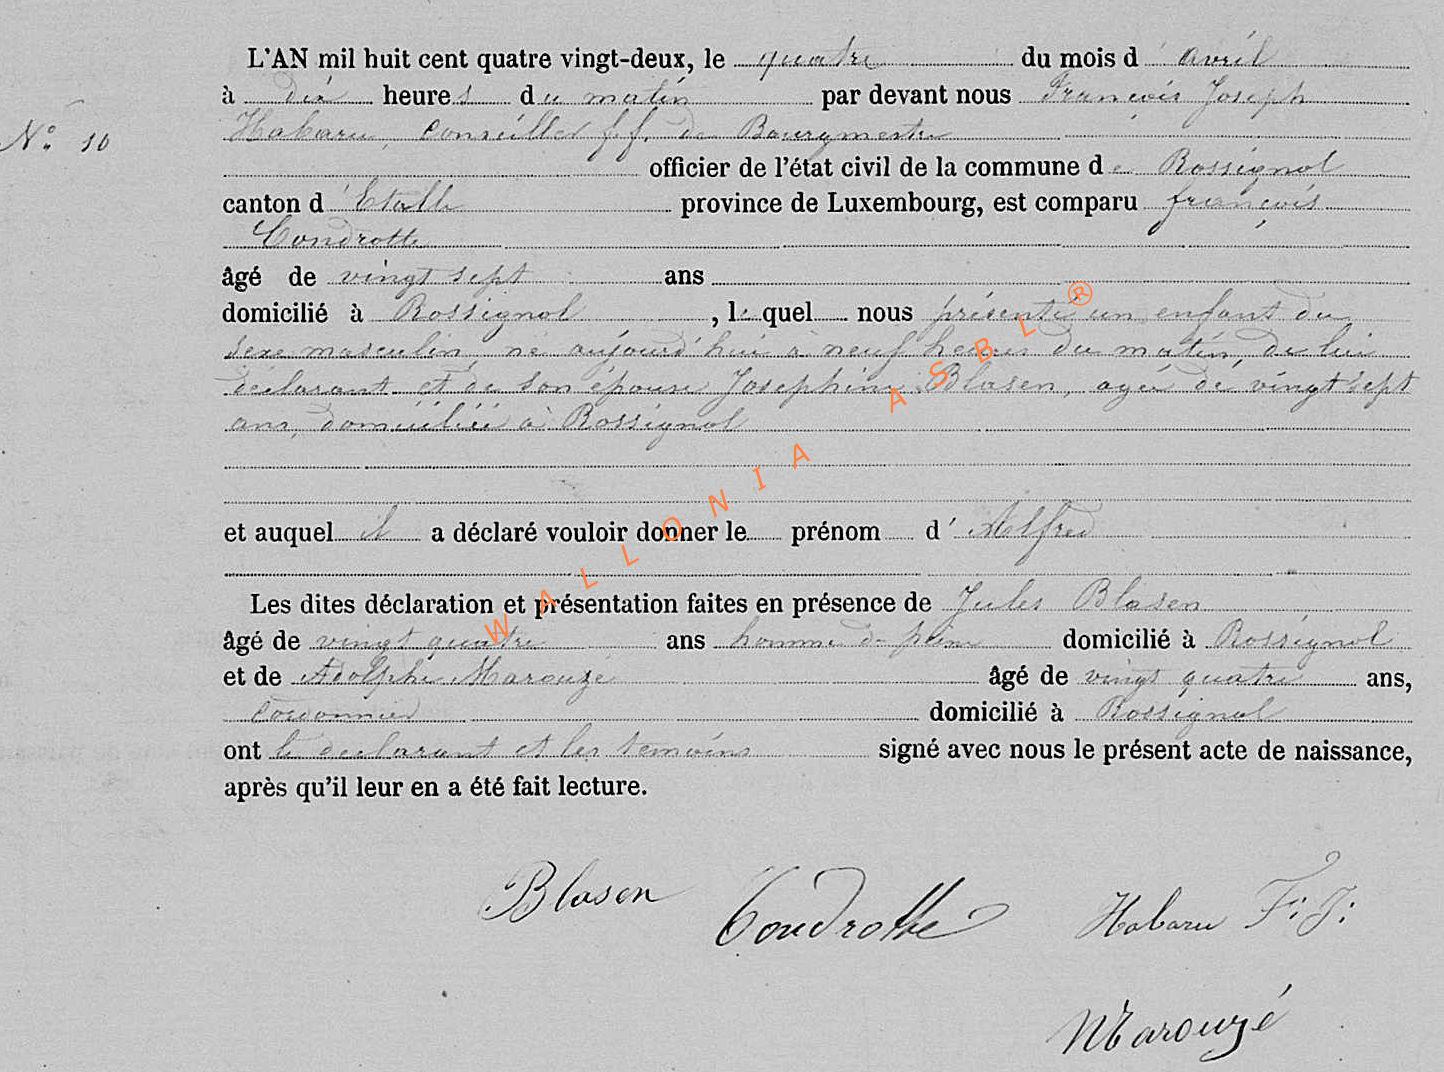 L'AN mil huit cent quatre vingt-deux, le quatre du mois d'avril
à dix heures du matin par devant nous François Joseph
N° 10
Habaru, Conseiller f.f. de Bourgmestre
officier de l'état civil de la commune de Rossignol
canton d'Etalle province de Luxembourg, est comparu françois
Condrotte
âgé de vingt sept ans
domicilié à Rossignol, le quel nous présenté un enfant du
sexe masculin, né aujourd'hui à neuf heures du matin, de lui
déclarant et de son épouse Josephine Blasen, agée de vingt sept
ans, domiciliée à Rossignol
et auquel il a déclaré vouloir donner le prénom d'Alfred
Les dites déclaration et présentation faites en présence de Jules Blasen
âgé de vingt quatre ans homme de peine domicilié à Rossignol
et de Adolphe Marouzé âgé de vingt quatre ans,
cordonnier domicilié à Rossignol
ont le déclarant et les témoins signé avec nous le présent acte de naissance,
après qu'il leur en a été fait lecture.
Blasen Condrotte Habaru F: J:
Marouzé
WALLONIA ASBL ®